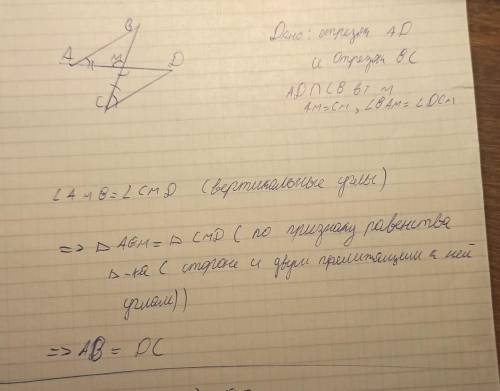 B
A M D
C
Дано: отрезки AD
и отрезки BC
AD∩CB в т M
AM=CM, ∠BAM=∠DCM
∠AMB=∠CMD (вертикальные углы)
=> △ABM=△CMD (по признаку равенства
△-ка (стороне и двум прележащим к ней
углам))
=> AB = DC